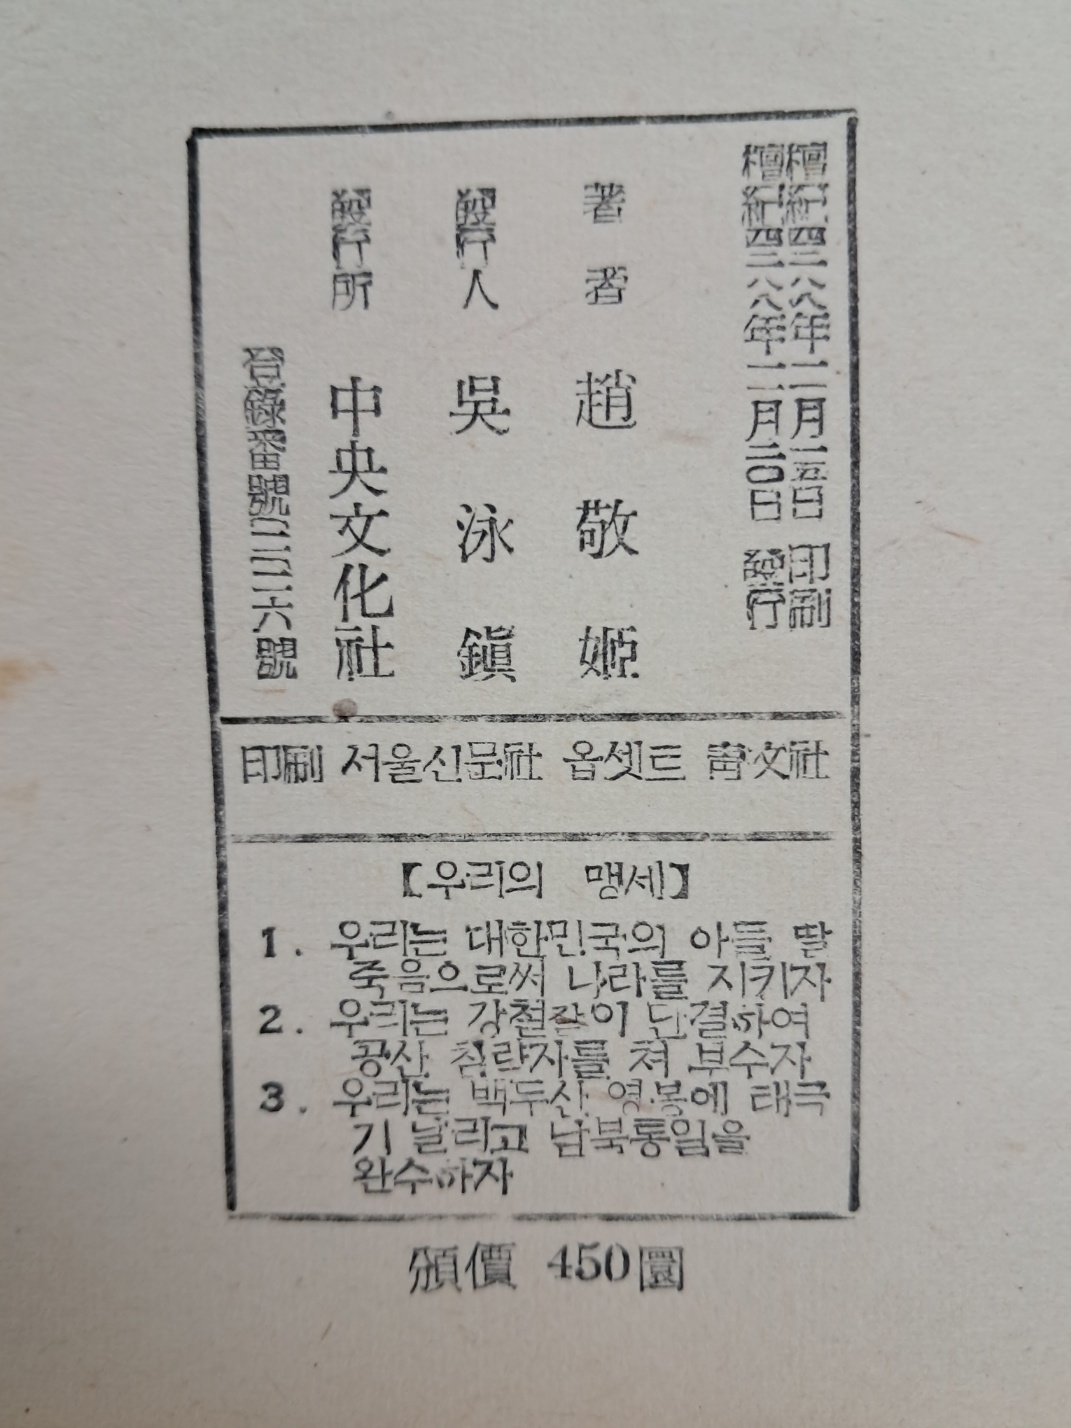 檀紀四二八八年一二月一五日 印刷
檀紀四二八八年一二月二〇日 發行
著者 趙敬姬
發行人 吳泳鎭
發行所 中央文化社
登錄番號
印刷 서울신문社 옵셋트
【우리의 맹세】
1. 우리는 대한민국의 아들 딸
죽음으로써 나라를 지키자
2. 우리는 강철같이 단결하여
공산 침략자를 쳐 부수자
3. 우리는 백두산 영봉에 태극
기 날리고 남북통일을
완수하자
頒價 450圜